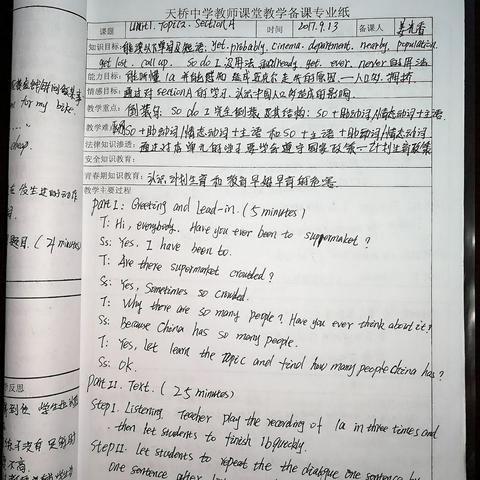 天桥中学教师课堂教学备课专业纸
课题 Unit1. Topic2. Section A 时间 2017.9.13 备课人
知识目标: 能读以下单词及短语: yet. probably, cinema. department. nearby, population
get lost. call up. So do I 没用法 already. yet. ever. never
能力目标: 能听懂 1a 并能
情感目标: 通过对 section A 的学习
教学重点: 倒装句: So do I 完全倒装及其结构: so + 助动词/情态动词 + 主语.
教学难点: so + 助动词/情态动词 + 主语 和 so + 主语 + 助动词/情态动词.
法律知识渗透: 通过对本单元的学习要学会遵守国家政策—计划生育政策
安全知识教育:
青春期知识教育: 认识计划生育和 早婚早育的危害.
教学主要过程
Part I: Greeting and Lead-in. (5 minutes)
T: Hi, everybody. Have you ever been to suppermaket?
Ss: Yes. I have been to.
T: Are there supermarket crowded?
Ss: Yes, Sometimes so crowded.
T: Why there are so many people? Have you ever think about it?
Ss: Because China has so many people.
T: Yes, let learn the topic and find how many people China has?
Ss: OK.
Part II. Text. (25 minutes)
Step I. Listening. Teacher play the recording of 1a in three times and
then let students to finish 1b quickly.
Step II. Let students to repeat the the dialogue one sentence by
one sentence after
for my bike.
cheap.
发生过的动作
题目. (4 minutes)
学反思